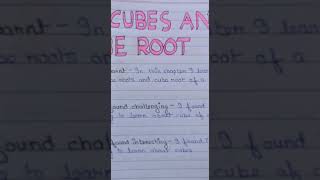 CUBES AN
BE ROOT
earnt - In this chapter I lear
roots and cube root of a
ound challenging - I found
to learn about cube of
found Interesting - I found
to learn about cubes
ound cha
to learn